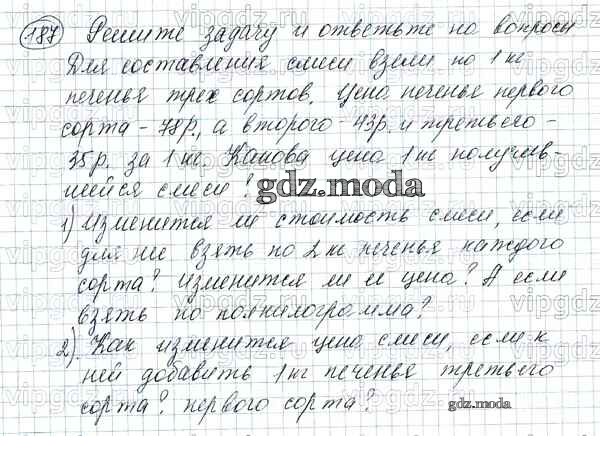 187 Решите задачу и ответьте на вопросы
Для составления смеси взяли по 1 кг
печенья трех сортов. Цена печенья первого
сорта - 78р., а второго - 43р. и третьего -
35р. за 1 кг. Какова цена 1 кг получив-
шейся смеси?
gdz.moda
1) Изменится ли стоимость смеси, если
для нее взять по 2 кг печенья каждого
сорта? Изменится ли ее цена? А если
взять по полкилограмма?
2). Как изменится цена смеси, если к
ней добавить 1 кг печенья третьего
сорта? первого сорта?
gdz.moda